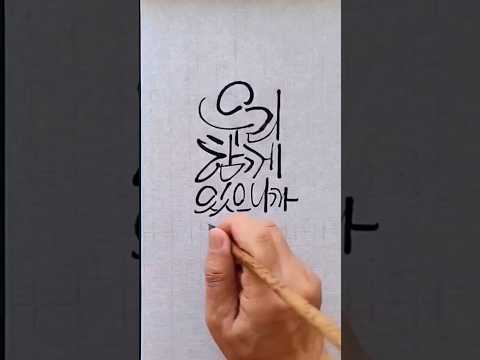 우리
함께
있으니까